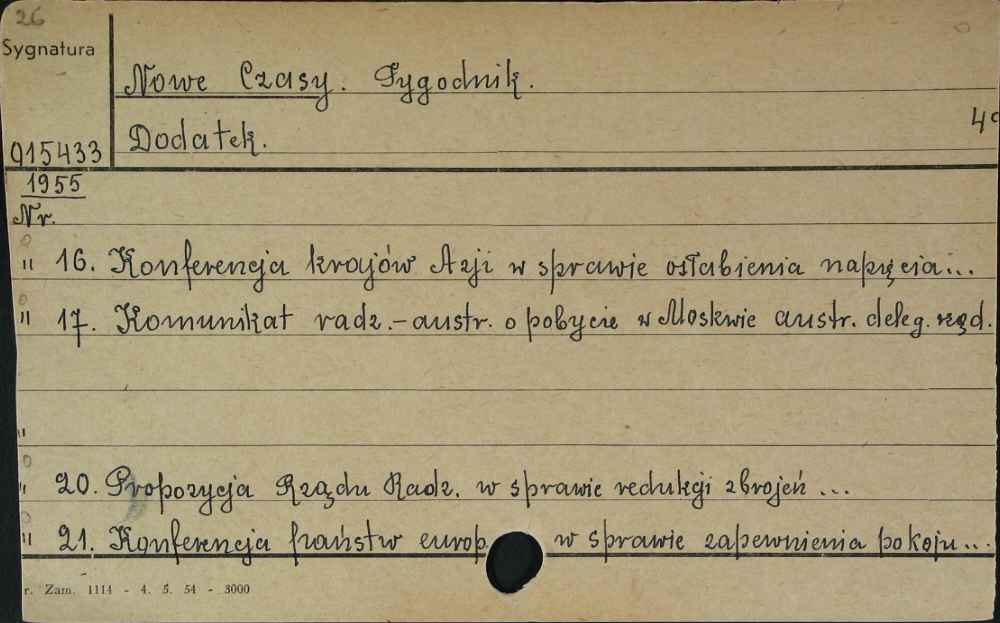 26
Sygnatura
Nowe Czasy. Tygodnik.
4°
915433 Dodatek.
1955
Nr.
" 16. Konferencja krajów Azji w sprawie osłabienia napięcia...
" 17. Komunikat radz.-austr. o pobycie w Moskwie austr. deleg. rząd.
"
" 20. Propozycja Rządu Radz. w sprawie redukcji zbrojeń ...
" 21. Konferencja państw europ. w sprawie zapewnienia pokoju...
r. Zam. 1114 - 4. 5. 54 - 3000